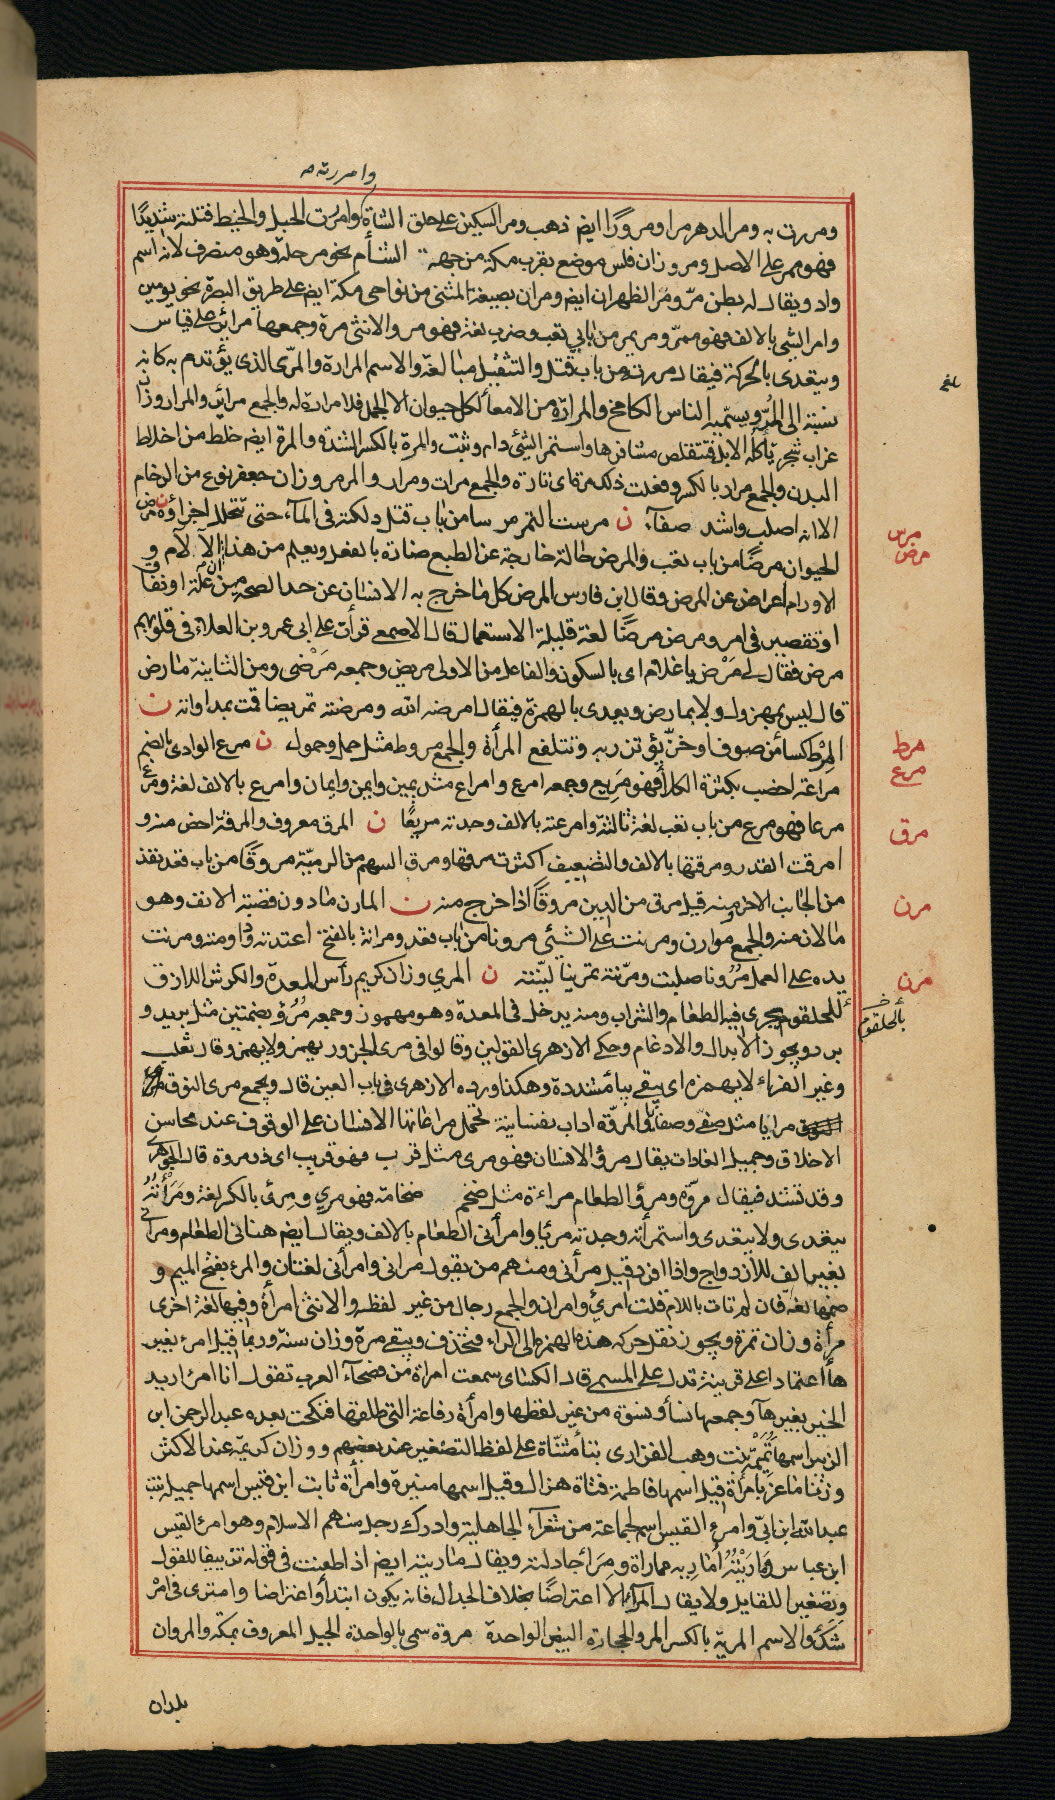 وامررته صه
ومررت به ومر الدهر مرا ومرورًا ايض ذهب ومر السكين على حلق الشاة وامررت الحبل والخيط فتلته شديدًا
فهو ممر على الاصل ومر وزان فلس موضع بقرب مكة من جهة الشأم نحو مرحلة وهو منصرف لانه اسم
واد ويقال له بطن مرّ ومَر الظهران ايض ومران بصيغة المثنى من نواحى مكة ايض على طريق البصرة نحو يومين
وامر الشي بالالف فهو ممرّ ومر يمر من بابي تعب وضرب لغة فهو مر والانثى مرة وجمعها مرائر على قياس
ويتعدى بالحركة فيقال مررته من باب قتل والتثقيل مبالغة والاسم المرارة والمرّى الذى يؤتدم به كانه
نسبة الى المُرّ ويسمّيه الناس الكامخ والمرارة من الامعاء لكل حيوان الا الجمل فلا مرارة له والجمع مرائر والمرار وزان
غراب شجر يأكله الابل فتقلص مشافرها واستمر الشئ دام وثبت والمرة بالكسر الشدة والمرة ايضم خلط من اخلاط
البدن والجمع مرار بالكسر وفعلت ذلك مرة اى تارة والجمع مرات ومرار والمرمر وزان جعفر نوع من الرخام
الا انه اصلب واشد صفآء ن مرست التمر مرسا من باب قتل دلكته فى المآء حتى تتحلل اجزاؤه ن مرض
الحيوان مرضًا من باب تعب والمرض حالة خارجة عن الطبع ضارة بالفعل ويعلم من هذا ان الآلام و
الاورام اعراض عن المرض وقال ابن فارس المرض كل ما خرج به الانسان عن حد الصحة من علّة او نفاق
او تقصير فى امر ومرض مرضًا لغة قليلة الاستعمال قال الاصمعى قرأت على ابى عمرو بن العلاء فى قلوبهم
مرض فقال لى مَرْض يا غلام اى بالسكون والفاعل من الاولى مريض وجمعه مَرْضى ومن الثانية مارض
قال ليس بمهزول ولا بمارض ويعدى بالهمزة فيقال امرضه الله ومرضته تمريضا قمت بمداواته ن
المِرْط كساء من صوف او خزّ يؤتزر به وتتلفع المرأة والجمع مروط مثل حمل وحمول ن مرع الوادى بالضم
مراعة اخصب بكثرة الكلأ فهو مريع وجمعه امرع وامراع مثل يمين وايمن وايمان وامرع بالالف لغة ومرع
مرعا فهو مرع من باب تعب لغة ثالثة وامرعته بالالف وجدته مريعًا ن المرق معروف والمرقة اخص منه و
امرقت القدر ومرقتها بالالف والتضعيف اكثرت مرقها ومرق السهم من الرميّة مروقًا من باب قعد نفذ
من الجانب الاخر ومنه قيل مرق من الدين مروقًا اذا خرج منه ن المارن ما دون قصبة الانف وهو
ما لان منه والجمع موارن ومرنت على الشئى مرونا من باب قعد ومرانة بالفتح اعتدته وداومته ومرنت
يده على العمل مُرُونا صلبت ومرّنته تمرينا ليّنته ن المري وزان كريم رأس المعدة والكرش اللازق
للحلقوم يجرى فيه الطعام والشراب ومنه يدخل فى المعدة وهو مهموز وجمعه مُرُؤ بضمتين مثل بريد و
برد ويجوز الابدال والادغام وحكى الازهرى القولين وقالوا فى مرى الجزور يهمز ولا يهمز وقال ثعلب
وغير الفراء لا يهمزه اى يبقى بياء مشددة وهكذا اورده الازهرى فى باب العين قال ويجمع مرى النوق
مرايا مثل صفى وصفايا والمروّة اداب نفسانية تحمل مراعاتها الانسان على الوقوف عند محاسن
الاخلاق وجميل العادات يقال مرؤ الانسان فهو مرى مثل قرب فهو قريب اى ذو مروة قال الجوهرى
وقد تشدد فيقال مروّة ومرؤ الطعام مراءة مثل ضخم ضخامة فهو مري ومرئ بالكسر لغة ومَرَأْتُهُ
يتعدى ولا يتعدى واستمرأته وجدته مرئيا وامرأنى الطعام بالالف ويقال ايض هنانى الطعام ومرأنى
بغير الف للازدواج واذا افرد قيل امرأنى ومنهم من يقول مرانى وامرأنى لغتان والمرء بفتح الميم و
ضمها لغة فان لم تات باللام قلت امرئ وامران والجمع رجال من غير لفظه والانثى امرأة وفيها لغة اخرى
مرأة وزان تمرة ويجوز نقل حركة هذه الهمزة الى الراء فتحذف ويبقى مرة وزان سنة وربما قيل امرء بغير
هاء اعتمادا على قرينة تدل على المسمى قال الكسائى سمعت امرأة من فصحآء العرب تقول انا امرء اريد
الخير بغير هآء وجمعها نساء ونسوة من غير لفظها وامرأة رفاعة التى طلقها فنكحت بعده عبد الرحمن ابن
الزبير اسمها تُمَيْمَة بنت وهب الفزارى بتاء مثنّاة على لفظ التصغير عند بعضهم ووزان كريمة عند الاكثر
وزنا ماعز بامرأة قيل اسمها فاطمة فتاة هزال وقيل اسمها منيرة وامرأة ثابت ابن قيس اسمها جميلة بنت
عبد الله ابن ابىّ وامرئ القيس اسم لجماعة من شعرآء الجاهلية وادرك رجل منهم الاسلام وهو امرئ القيس
ابن عباس وَمَارَيْتُهُ اُمَارِيه مماراة ومِرَاء جادلته ويقال ماريته ايض اذا طعنت فى قوله تزييفا للقول
وتصغيرا للقايل ولا يقال المرآء الا اعتراضًا بخلاف الجدال فانه يكون ابتداء واعتراضا وامترى فى امْر
شَكَّ والاسم المرية بالكسر المرو الحجارة البيض الواحدة مروة سمى بالواحدة الجبل المعروف بمكة والمروان
بلدان
مرس
مرض
مرط
مرع
مرق
مرن
مرن
بالحلقوم